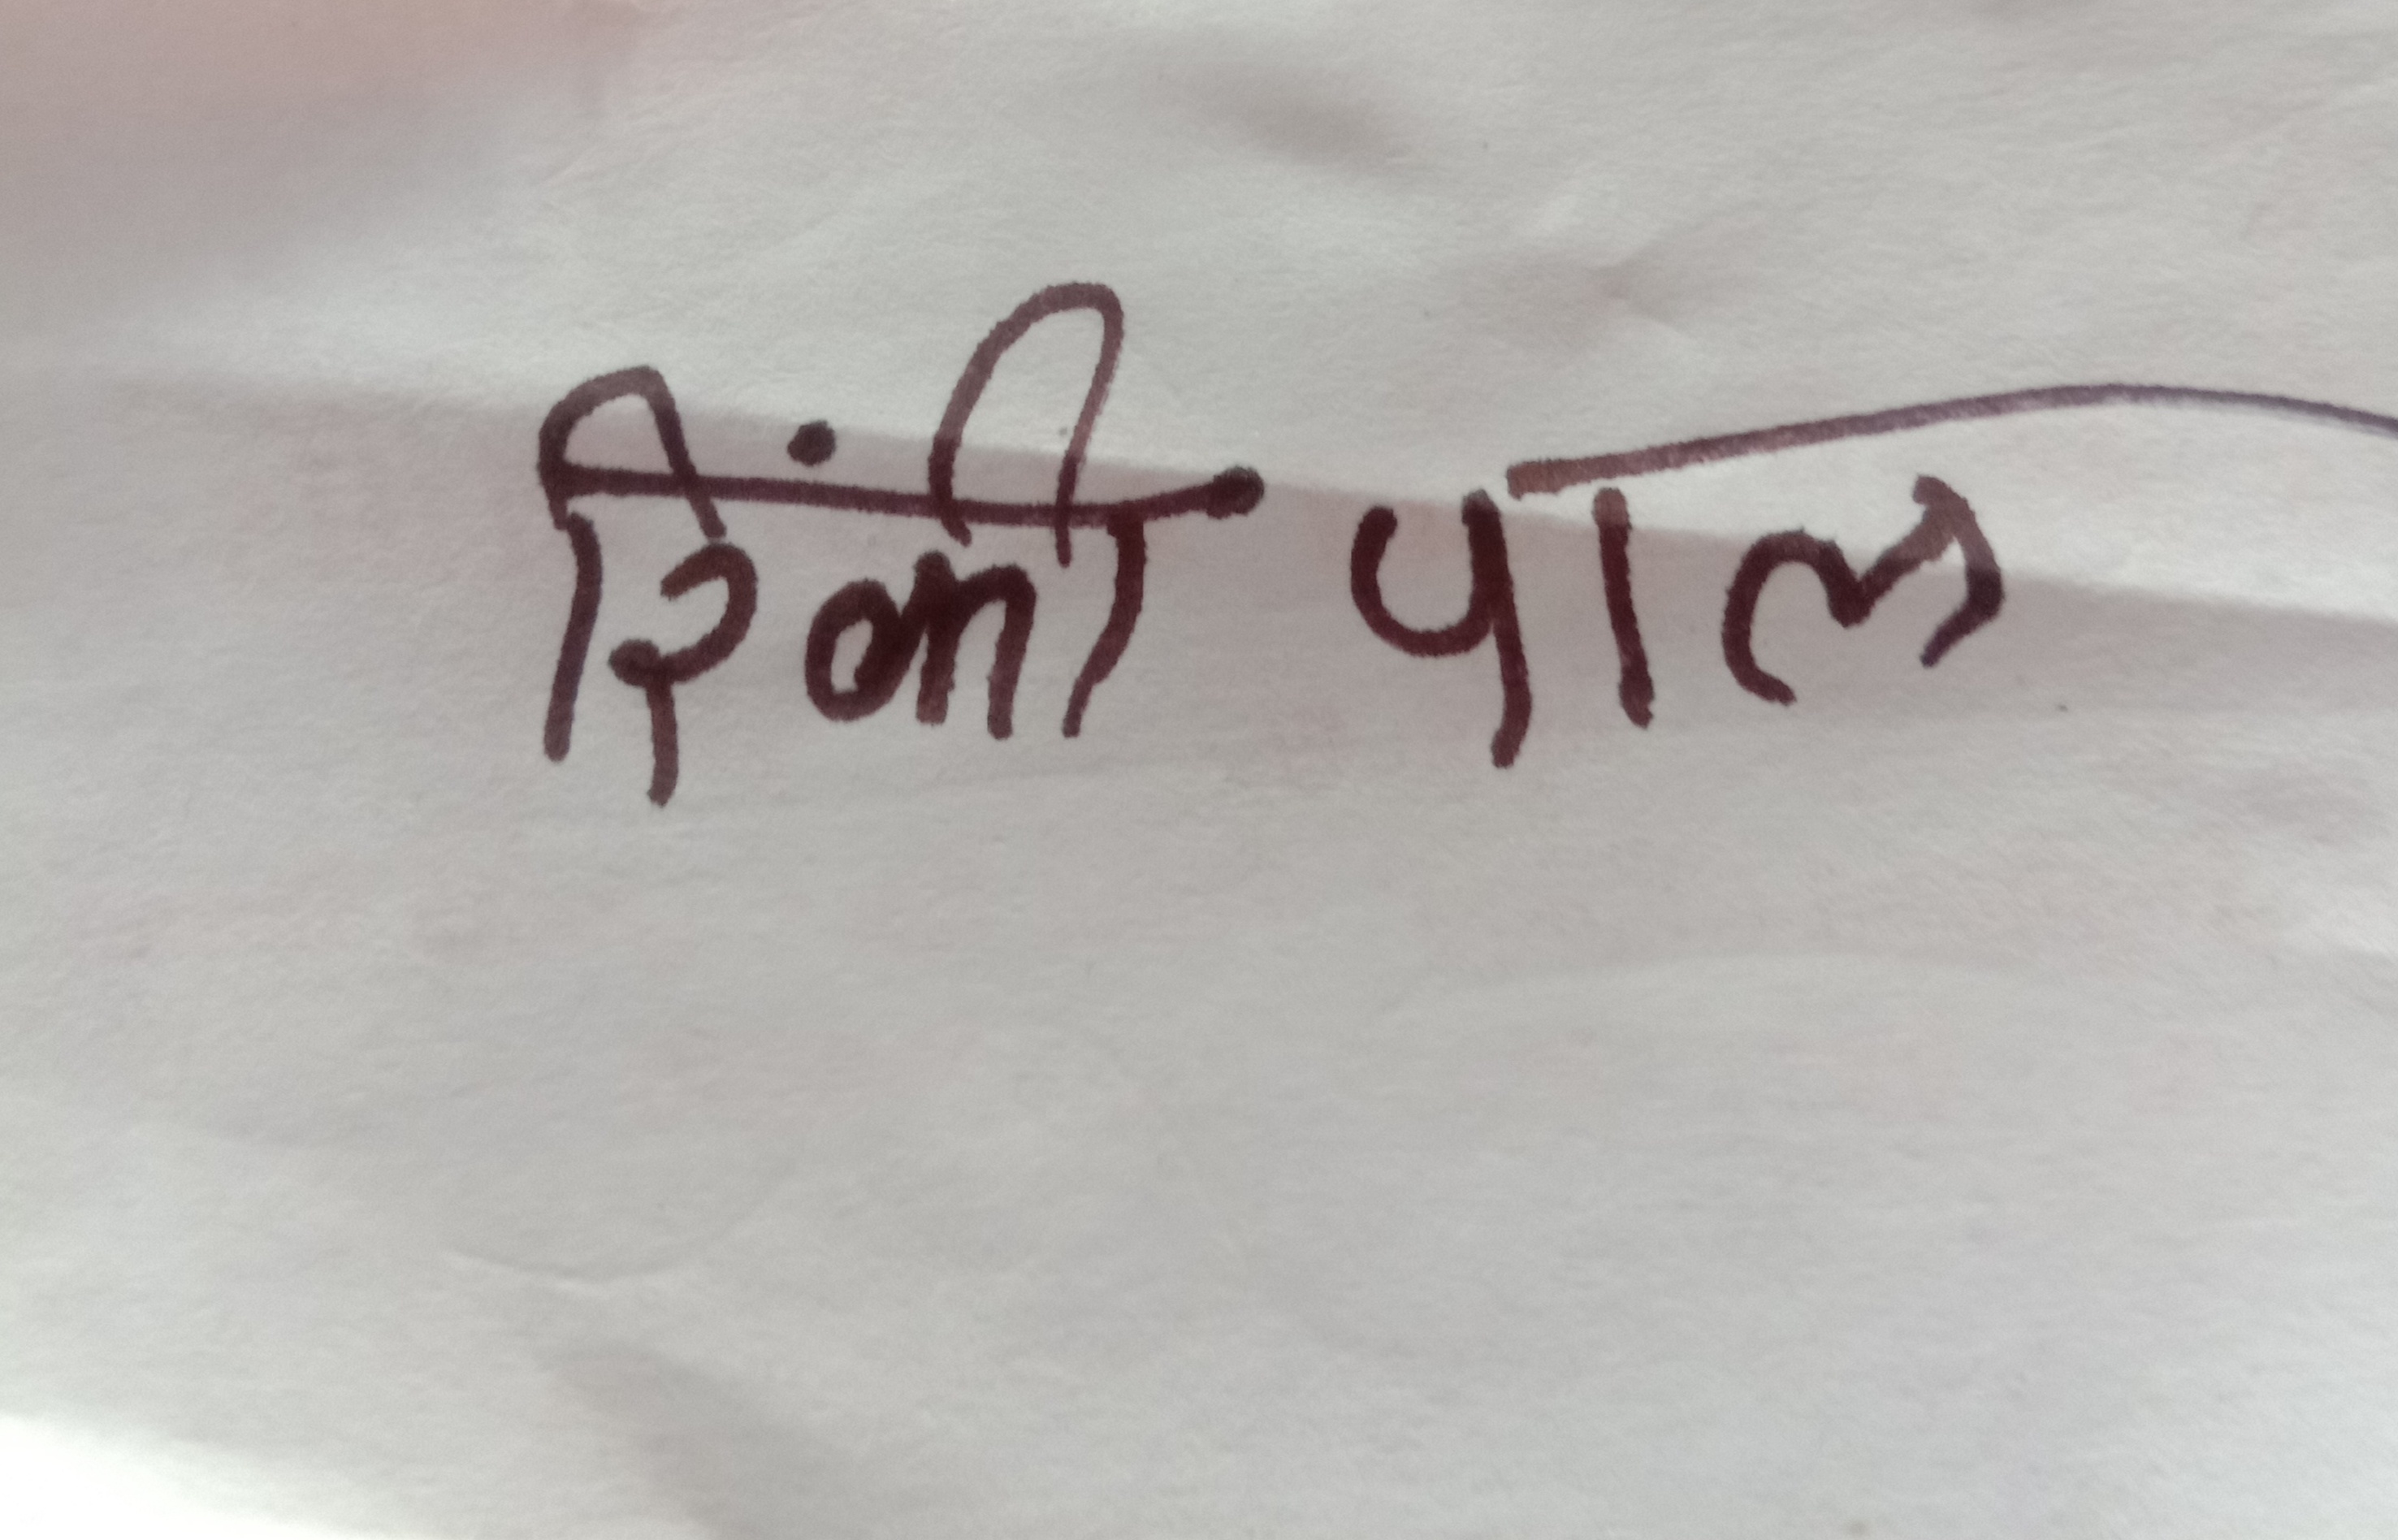 रिंकी पाल